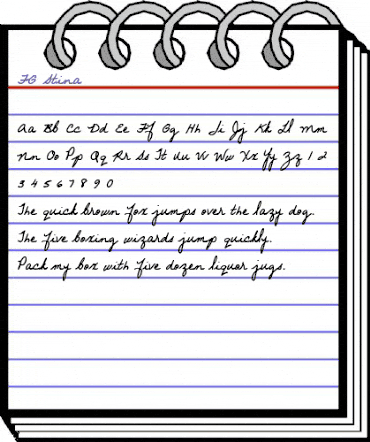 FG Stina
Aa Bb Cc Dd Ee Ff Gg Hh Ii Jj Kk Ll Mm
Nn Oo Pp Qq Rr Ss Tt Uu Vv Ww Xx Yy Zz 1 2
3 4 5 6 7 8 9 0
The quick brown fox jumps over the lazy dog.
The five boxing wizards jump quickly.
Pack my box with five dozen liquor jugs.